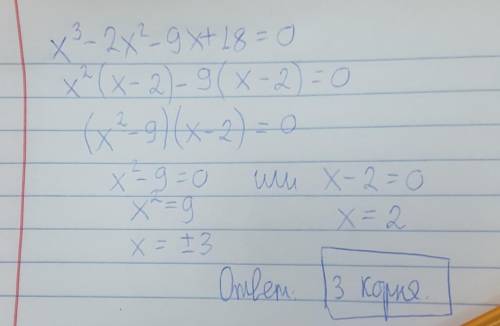 x³ - 2x² - 9x + 18 = 0
x² (x - 2) - 9 (x - 2) = 0
(x² - 9)(x - 2) = 0
x² - 9 = 0 или x - 2 = 0
x² = 9 x = 2
x = ±3
Ответ. 3 корня.